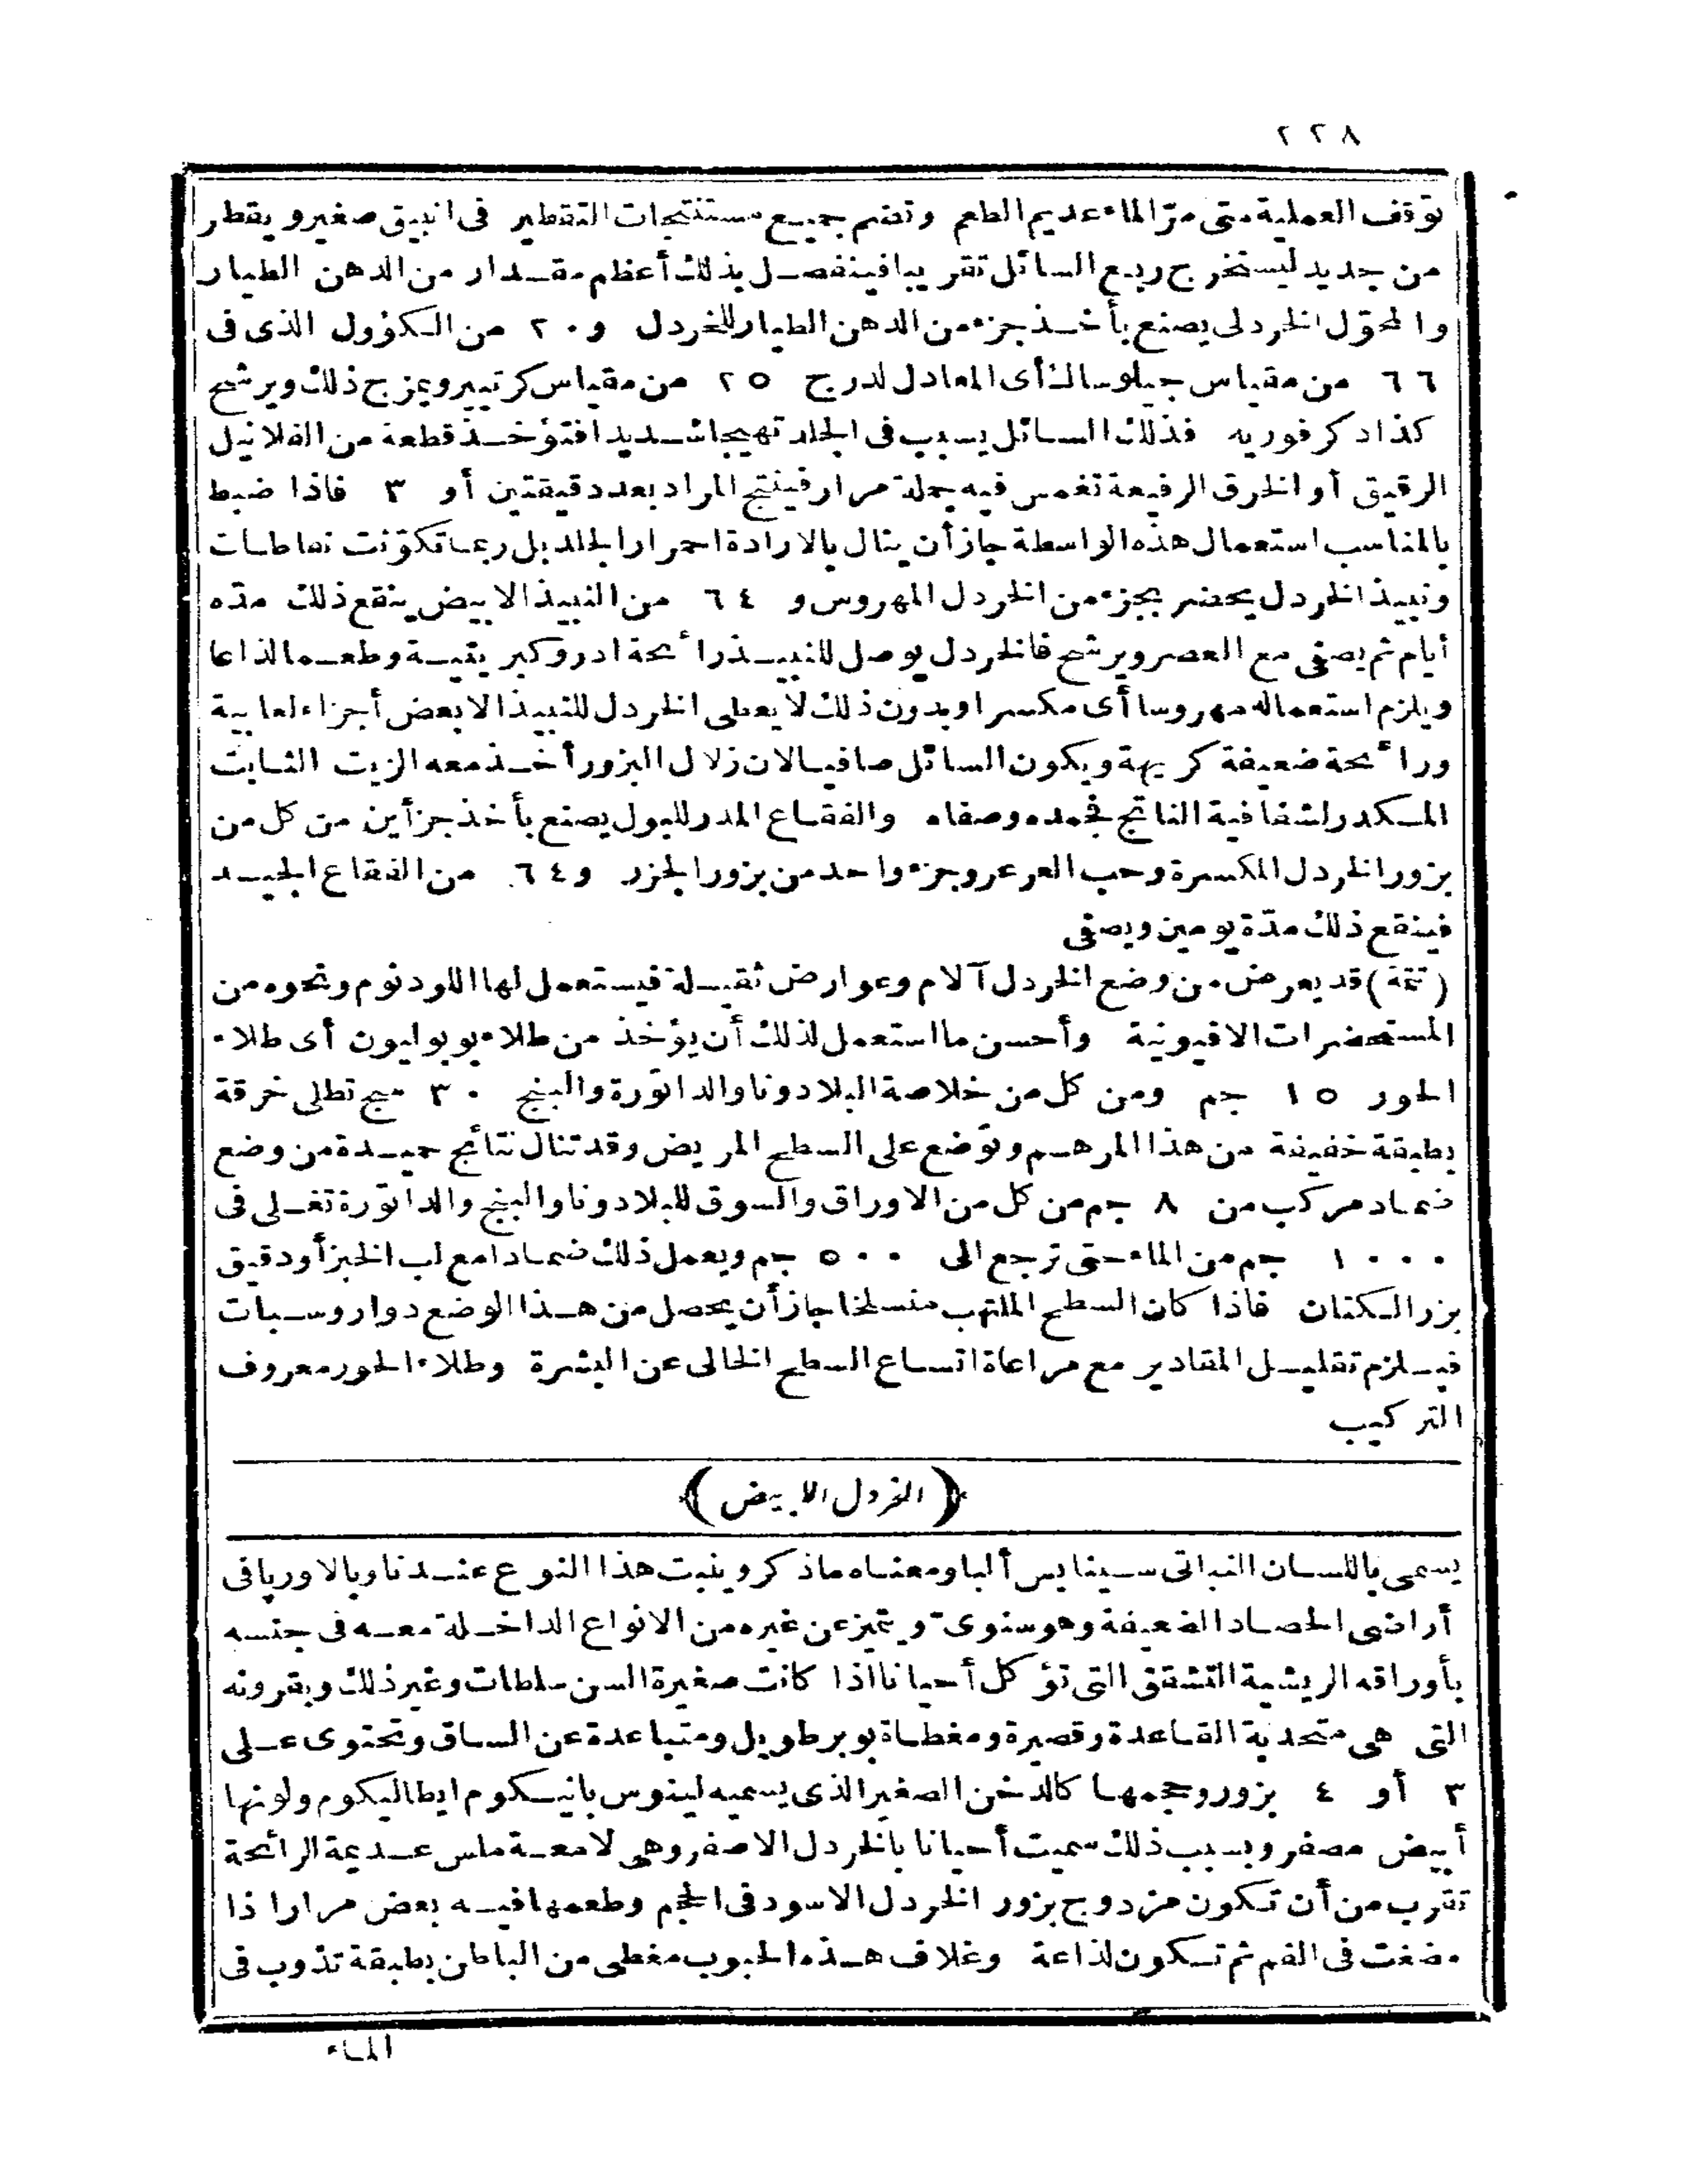 ٢٢٨
توقف العملية متى مرّ الماء عديم الطعم وتضم جميع مستنتجات التقطير فى انبيق صغير ويقطر
من جديد ليستخرج ربع السائل تقريبا فينفصل بذلك أعظم مقدار من الدهن الطيار
والمحوّل الخردلى يصنع بأخذ جزء من الدهن الطيار للخردل و ٢٠ من الكؤول الذى فى
٦٦ من مقياس جيلوساك أى المعادل لدرج ٢٥ من مقياس كرتيير ويمزج ذلك ويرشح
كذا ذكر فوريه فذلك السائل يسبب فى الجلد تهيجا شديدا فتؤخذ قطعة من الفلانيل
الرقيق أو الخرق الرفيعة تغمس فيه جملة مرار فينتج المراد بعد دقيقتين أو ٣ فاذا ضبط
بالمناسب استعمال هذه الواسطة جاز أن ينال بالارادة احمرار الجلد بل ربما تكوّنت نفاطات
ونبيذ الخردل يحضر بجزء من الخردل المهروس و ٦٤ من النبيذ الابيض ينقع ذلك مدّه
أيام ثم يصفى مع العصر ويرشح فالخردل يوصل للنبيذ رائحة ادروكبريتية وطعما لذاعا
ويلزم استعماله مهروسا أى مكسرا وبدون ذلك لا يعطى الخردل للنبيذ الا بعض أجزاء لعابية
ورائحة ضعيفة كريهة ويكون السائل صافيا لان زلال البزور أخذ معه الزيت الثابت
المكدر لشفافية الناتج فجمده وصفاه والفقاع المدر للبول يصنع بأخذ جزأين من كل من
بزور الخردل المكسرة وحب العرعر وجزء واحد من بزور الجزر و ٦٤ من الفقاع الجيد
فينقع ذلك مدّة يومين ويصفى
(تتمة) قد يعرض من وضع الخردل آلام وعوارض ثقيلة فيستعمل لها اللودنوم ونحوه من
المستحضرات الافيونية وأحسن ما استعمل لذلك أن يؤخذ من طلاء بوبوليون أى طلاء
الحور ١٥ جم ومن كل من خلاصة البلادونا والداتورة والبنج ٣٠ سج تطلى خرقة
بطبقة خفيفة من هذا المرهم وتوضع على السطح المريض وقد تنال نتائج حميدة من وضع
ضماد مركب من ٨ جم من كل من الاوراق والسوق للبلادونا والبنج والداتورة تغلى فى
١٠٠٠ جم من الماء حتى ترجع الى ٥٠٠ جم ويعمل ذلك ضمادا مع لب الخبز أو دقيق
بزر الكتان فاذا كان السطح الملتهب منسلخا جاز أن يحصل من هذا الوضع دوار وسبات
فيلزم تقليل المقادير مع مراعاة اتساع السطح الخالى عن البشرة وطلاء الحور معروف
التركيب
﴿الخردل الابيض﴾
يسمى باللسان النباتى سينابس ألبا ومعناه ماذكر وينبت هذا النوع عندنا وبالاورپا فى
أراضى الحصاد الضعيفة وهو سنوىّ ويتميز عن غيره من الانواع الداخلة معه فى جنسه
بأوراقه الريشية التشقق التى تؤكل أحيانا اذا كانت صغيرة السن سلطات وغير ذلك وبقرونه
التى هى متحدبة القاعدة وقصيرة ومغطاة بوبر طويل ومتباعدة عن الساق وتحتوى على
٣ أو ٤ بزور وحجمها كالدخن الصغير الذى يسميه لينوس بانيكوم ايطاليكوم ولونها
أبيض مصفر وبسبب ذلك سميت أحيانا بالخردل الاصفر وهى لامعة ملس عديمة الرائحة
تقرب من أن تكون مزدوج بزور الخردل الاسود فى الحجم وطعمها فيه بعض مرار اذا
مضغت فى الفم ثم تكون لذاعة وغلاف هذه الحبوب مغطى من الباطن بطبقة تذوب فى
الماء